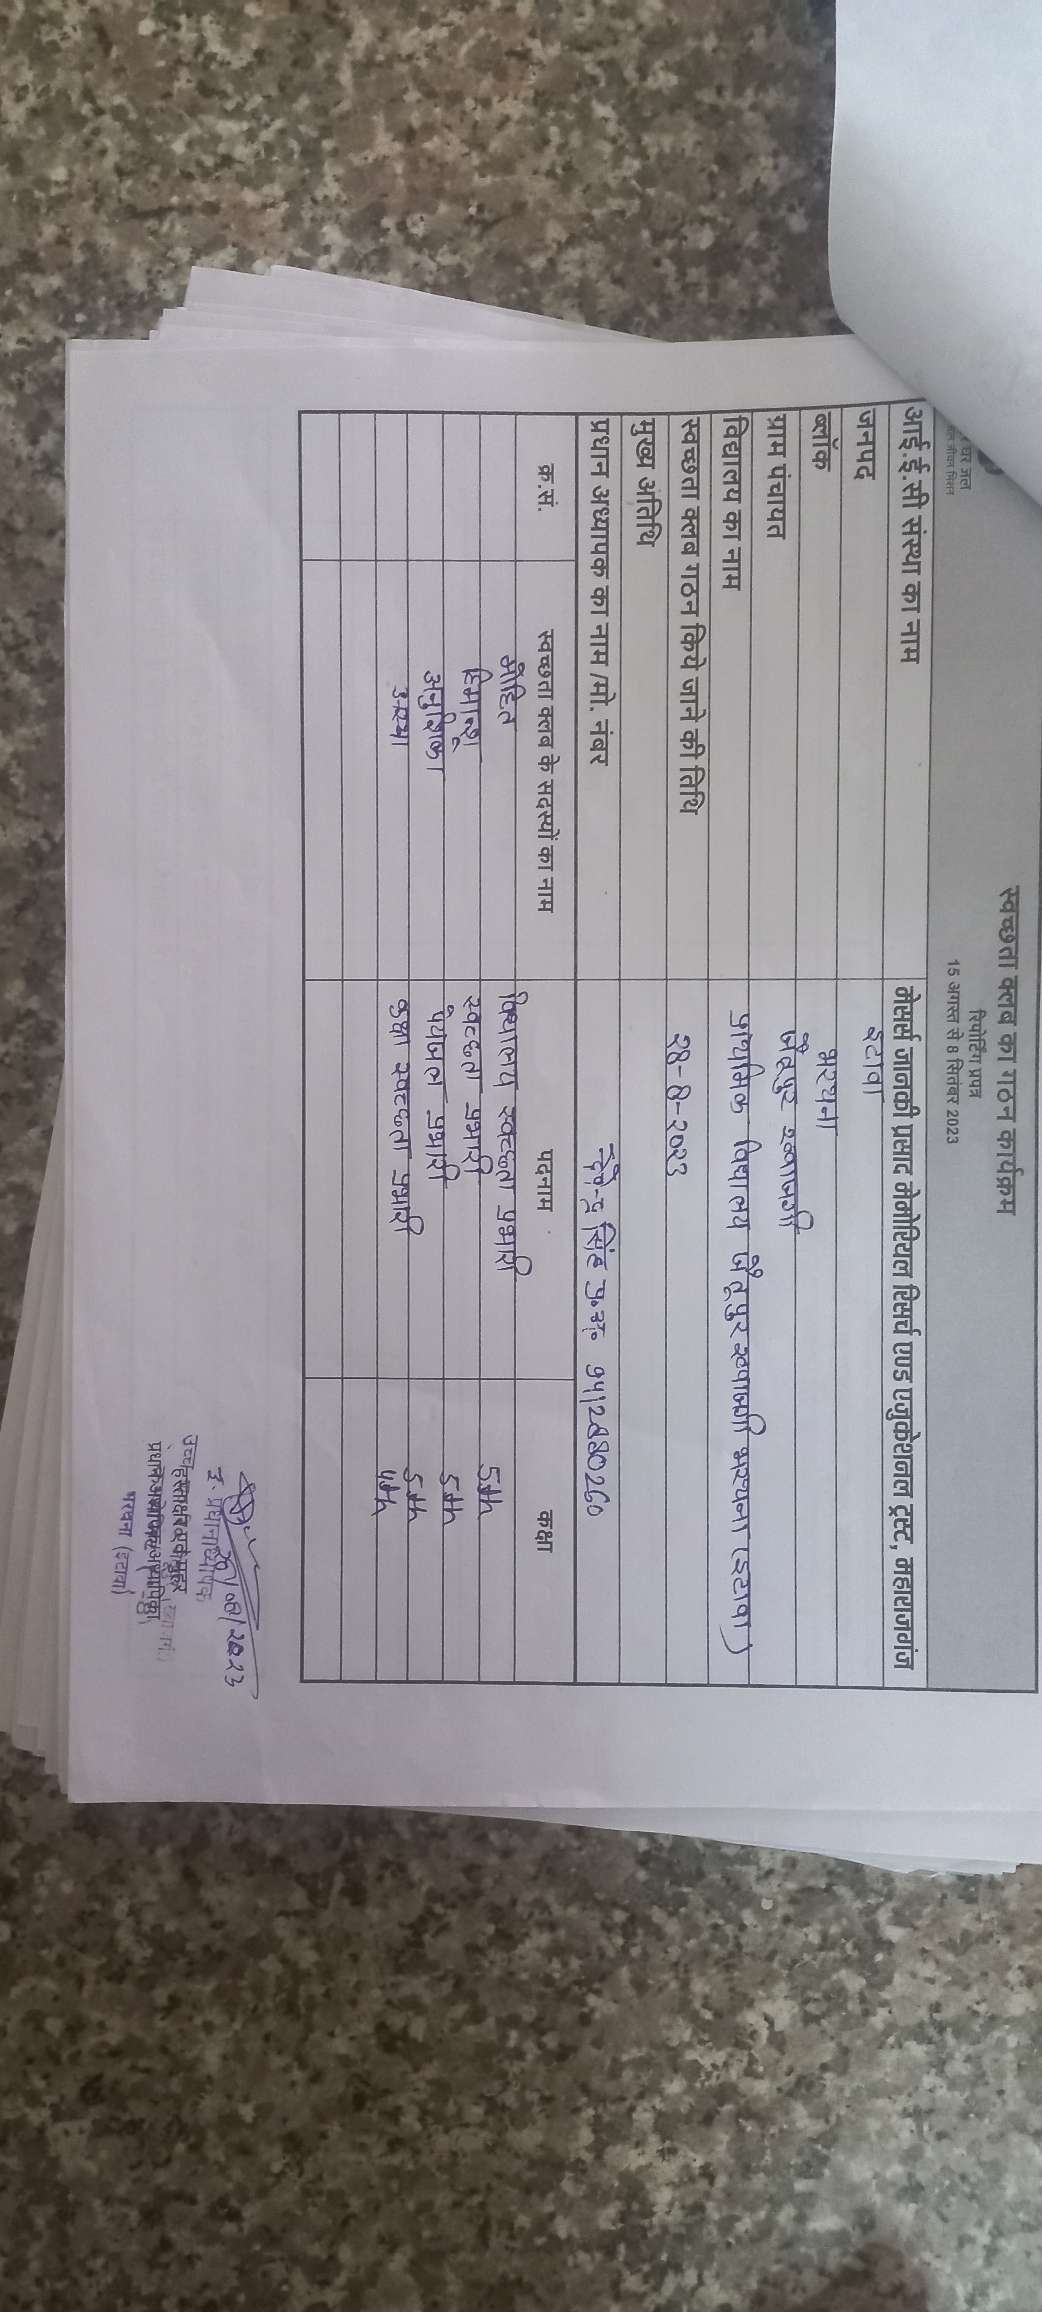 स्वच्छता क्लब का गठन कार्यक्रम
रिपोर्टिंग प्रपत्र
15 अगस्त से 8 सितंबर 2023
घर जल
जीवन मिशन
आई.ई.सी संस्था का नाम मेसर्स जानकी प्रसाद मेमोरियल रिसर्च एण्ड एजुकेशनल ट्रस्ट, महाराजगंज
जनपद इटावा
ब्लॉक भरथना
ग्राम पंचायत जैतूपुर
विद्यालय का नाम प्राथमिक विद्यालय जैतूपुर भरथना (इटावा)
स्वच्छता क्लब गठन किये जाने की तिथि 28-8-2023
मुख्य अतिथि
प्रधान अध्यापक का नाम /मो. नंबर देवेन्द्र सिंह
क्र.सं. स्वच्छता क्लब के सदस्यों का नाम पदनाम कक्षा
मोहित विद्यालय स्वच्छता प्रभारी 5th
हिमान्शू स्वच्छता प्रभारी 5th
अनुशिका पेयजल प्रभारी 5th
कक्षा स्वच्छता प्रभारी 4th
इं. प्रधानाध्यापक
भरथना (इटावा)